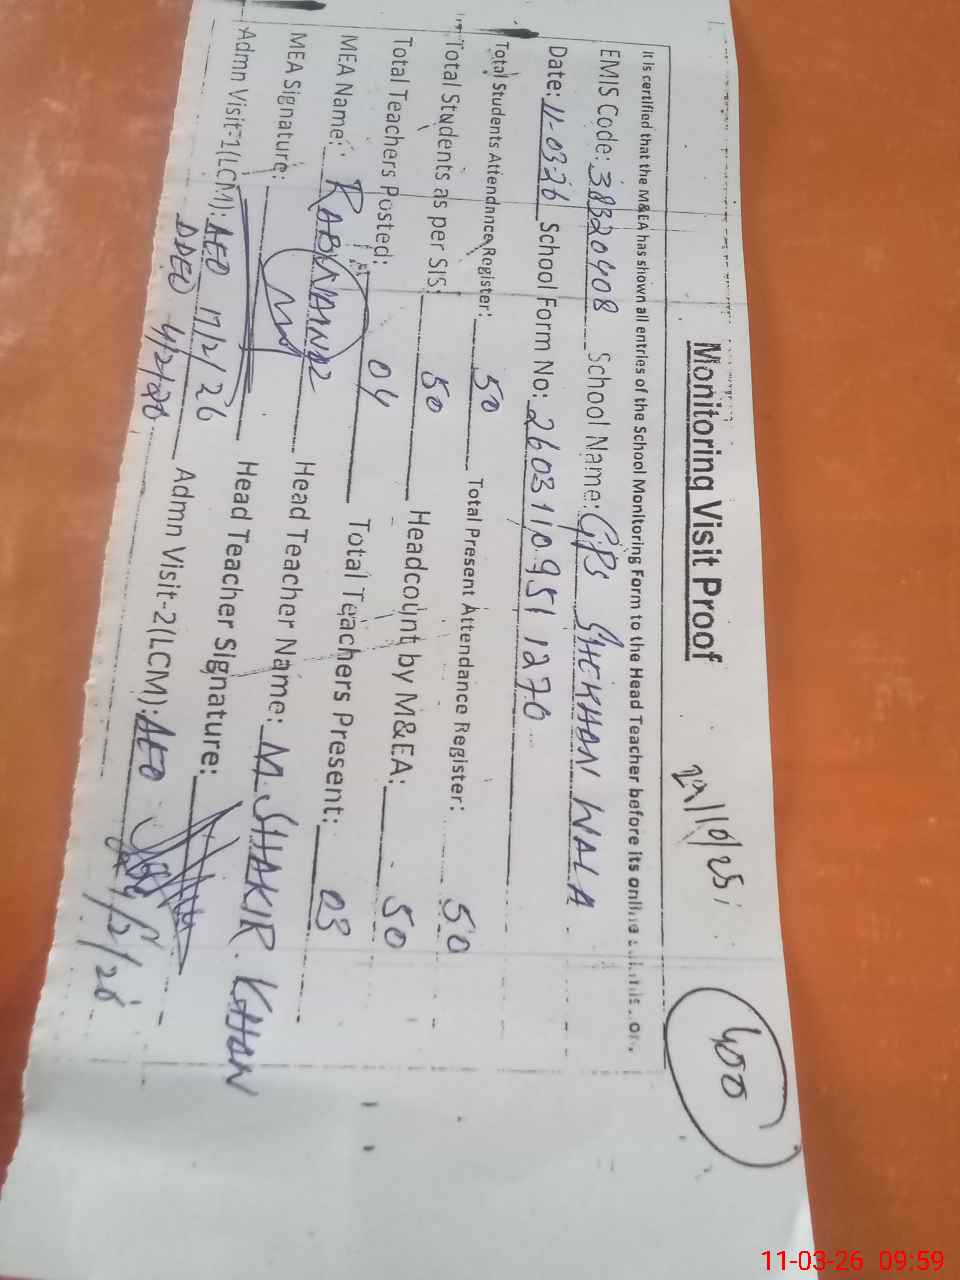 Monitoring Visit Proof
29/10/25
400
It is certified that the M&EA has shown all entries of the School Monitoring Form to the Head Teacher before its online
EMIS Code: 38320408 School Name: GPS SHEKHAN WALA
Date: 11-0326 School Form No: 26031109511270
Total Students Attendance Register: 50 Total Present Attendance Register: 50
Total Students as per SIS: 50 Headcount by M&EA: 50
Total Teachers Posted: 04 Total Teachers Present: 03
MEA Name: Head Teacher Name: M. SHAKIR KHAN
MEA Signature: Head Teacher Signature:
Admn Visit-1(LCM): AEO 17/2/26 Admn Visit-2(LCM): AEO
DDEO 4/2/26
11-03-26 09:59